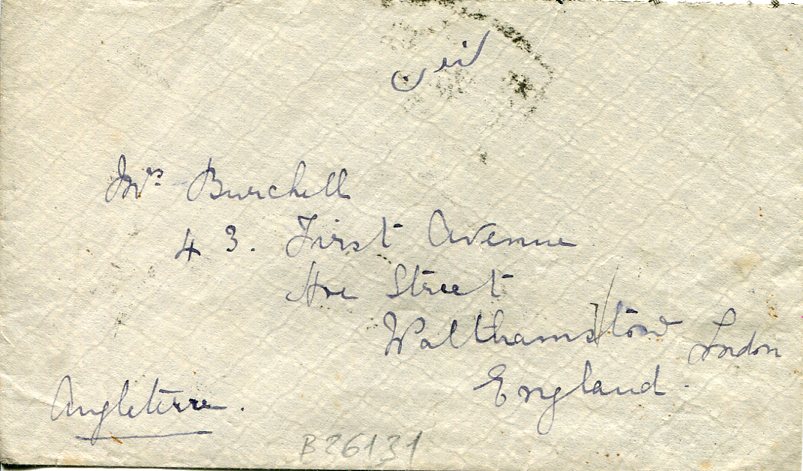 Mrs Burchell
43. First Avenue
Hoe Street
Walthamstow London
England.
Angleterre.
B26131